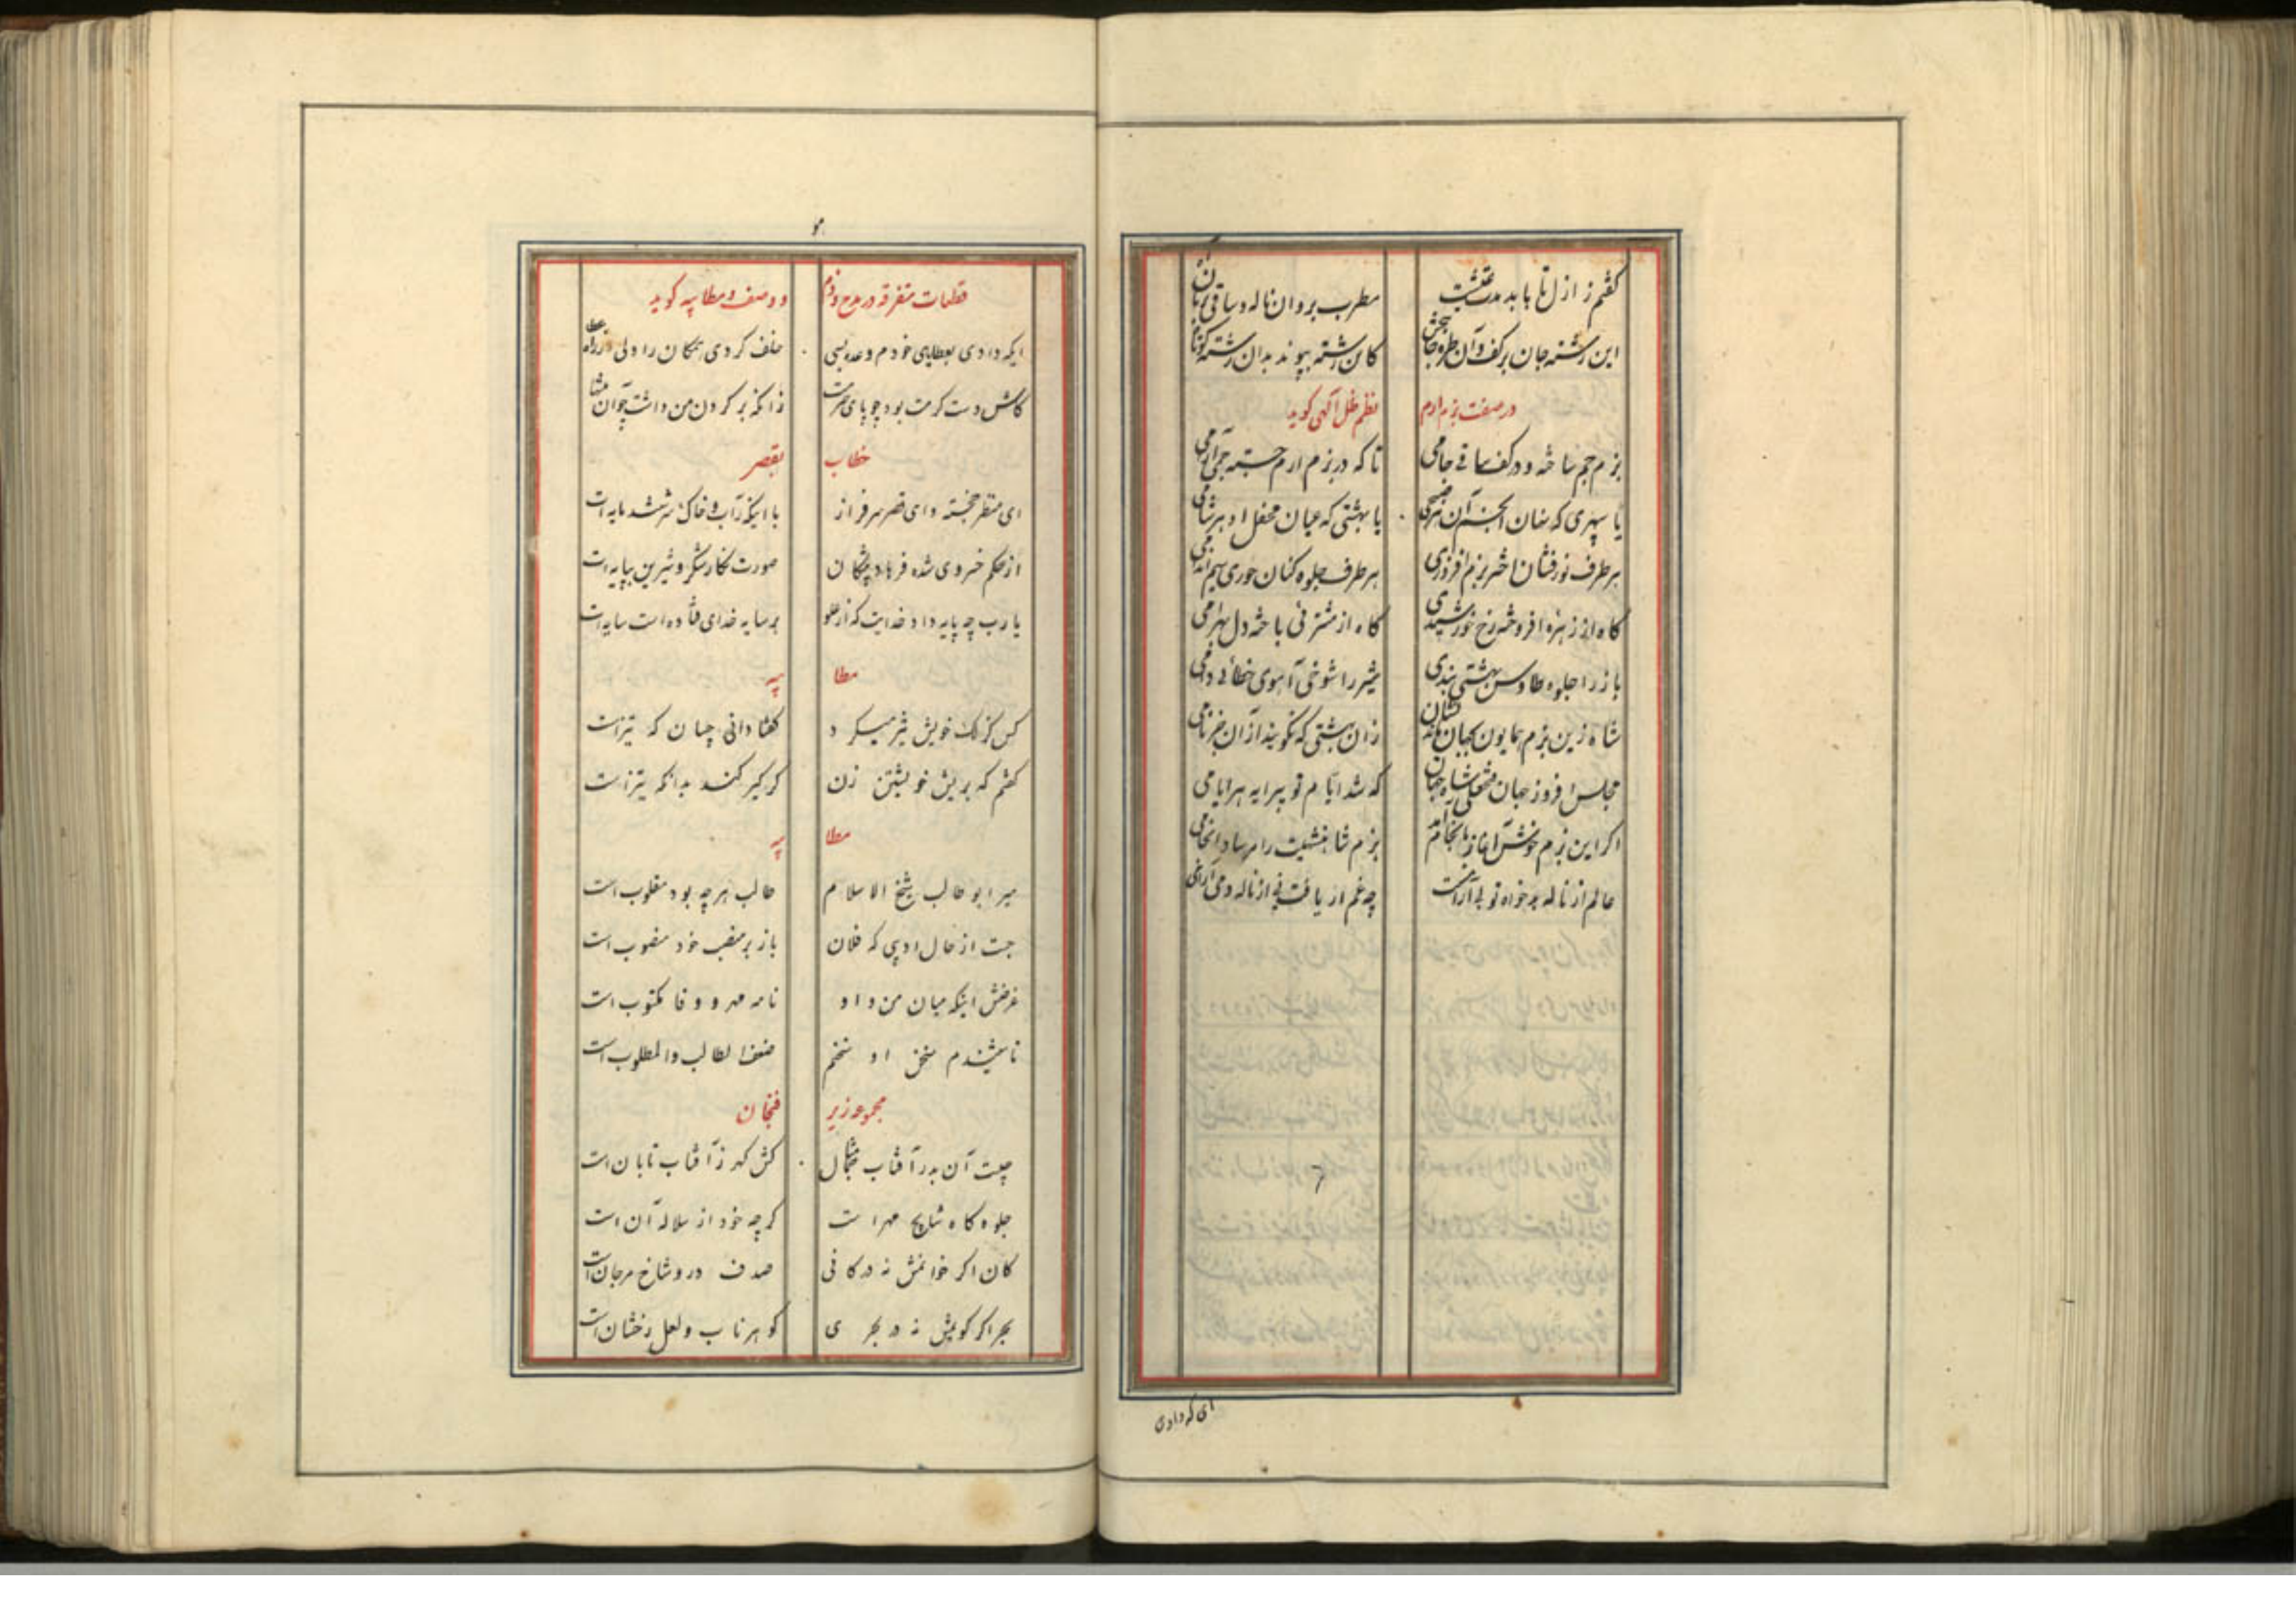 گفتم ز ازل تا بابد مدت عیشت مطرب بروان ناله و ساقی
این رشته جان بر کف و آن طره کان رشته بپیوند بدان رشته
در صفت بزم ارم نظم ظل آلهی کوید
بزم جم ساخته و در کف ساقی جامی تا که در بزم ارم جسته
یا سپهری که نهان انجم آن یا بهشتی که عیان محفل او هر شامی
هر طرف نورفشان اختر بزم افروزی هر طرف جلوه کنان حوری سیم اندامی
کاه از زهره افروخته رخ خورشیدی کاه از مشتریی باخته دل بهرامی
باز را جلوه طاوس بهشتی بندی شیر را شوخی آهوی خطائی دامی
شاه زین بزم همایون بجهان زان بهشتی که نکویند از آن جز نامی
مجلس افروز جهان فتحعلی شاه جهان که شد ایام تو پیرایه هر ایامی
اکر این بزم خوش آغاز بانجام آمد بزم شاهنشهیت را مرساد انجامی
عالم از ناله بدخواه تو بی آرامست چه غم ار یافت نی از ناله و می آرامی
ای که دادی
قطعات متفرقه در مدح و ذم و وصف و مطایبه کوید
ایکه دادی بعطایای خودم وعده بسی خلف کردی همکان را ولی
کاش دست کرمت بود چو پای زانکه بر کردن من داشت
خطاب بقصر
ای منظر خجسته و ای قصر سرفراز با اینکه زآب و خاک سرشتند مایه ات
از حکم خسروی شده فرهاد پیشکان صورت نکار شکر و شیرین بپایه ات
یا رب چه پایه داد خدایت که از علو بر سایه خدای فتاده است سایه ات
مطا یبه
کس کزلک خویش تیز میکرد کفتا دانی چسان که تیز است
کفتم که بریش خویشتن زن کر کیر کند بدانکه تیز است
مطا یبه
میر ابو طالب شیخ الاسلام طالب هر چه بود مغلوب است
جست از حال ادیبی که فلان باز بر منصب خود منصوب است
غرضش اینکه میان من و او نامه مهر و وفا مکتوب است
ناشیندم سخن او سخنم ضعف الطالب والمطلوب است
مجموعه زیر فنجان
چیست آن بدر آفتاب مثال کش کهر زآفتاب تابان است
جلوه کاه نتایج مهر است کرچه خود از سلاله آن است
کان اکر خوانمش نه در کانی صدف در و شاخ مرجان است
بحر اکر کویمش نه در بحری کوهر ناب و لعل رخشان است